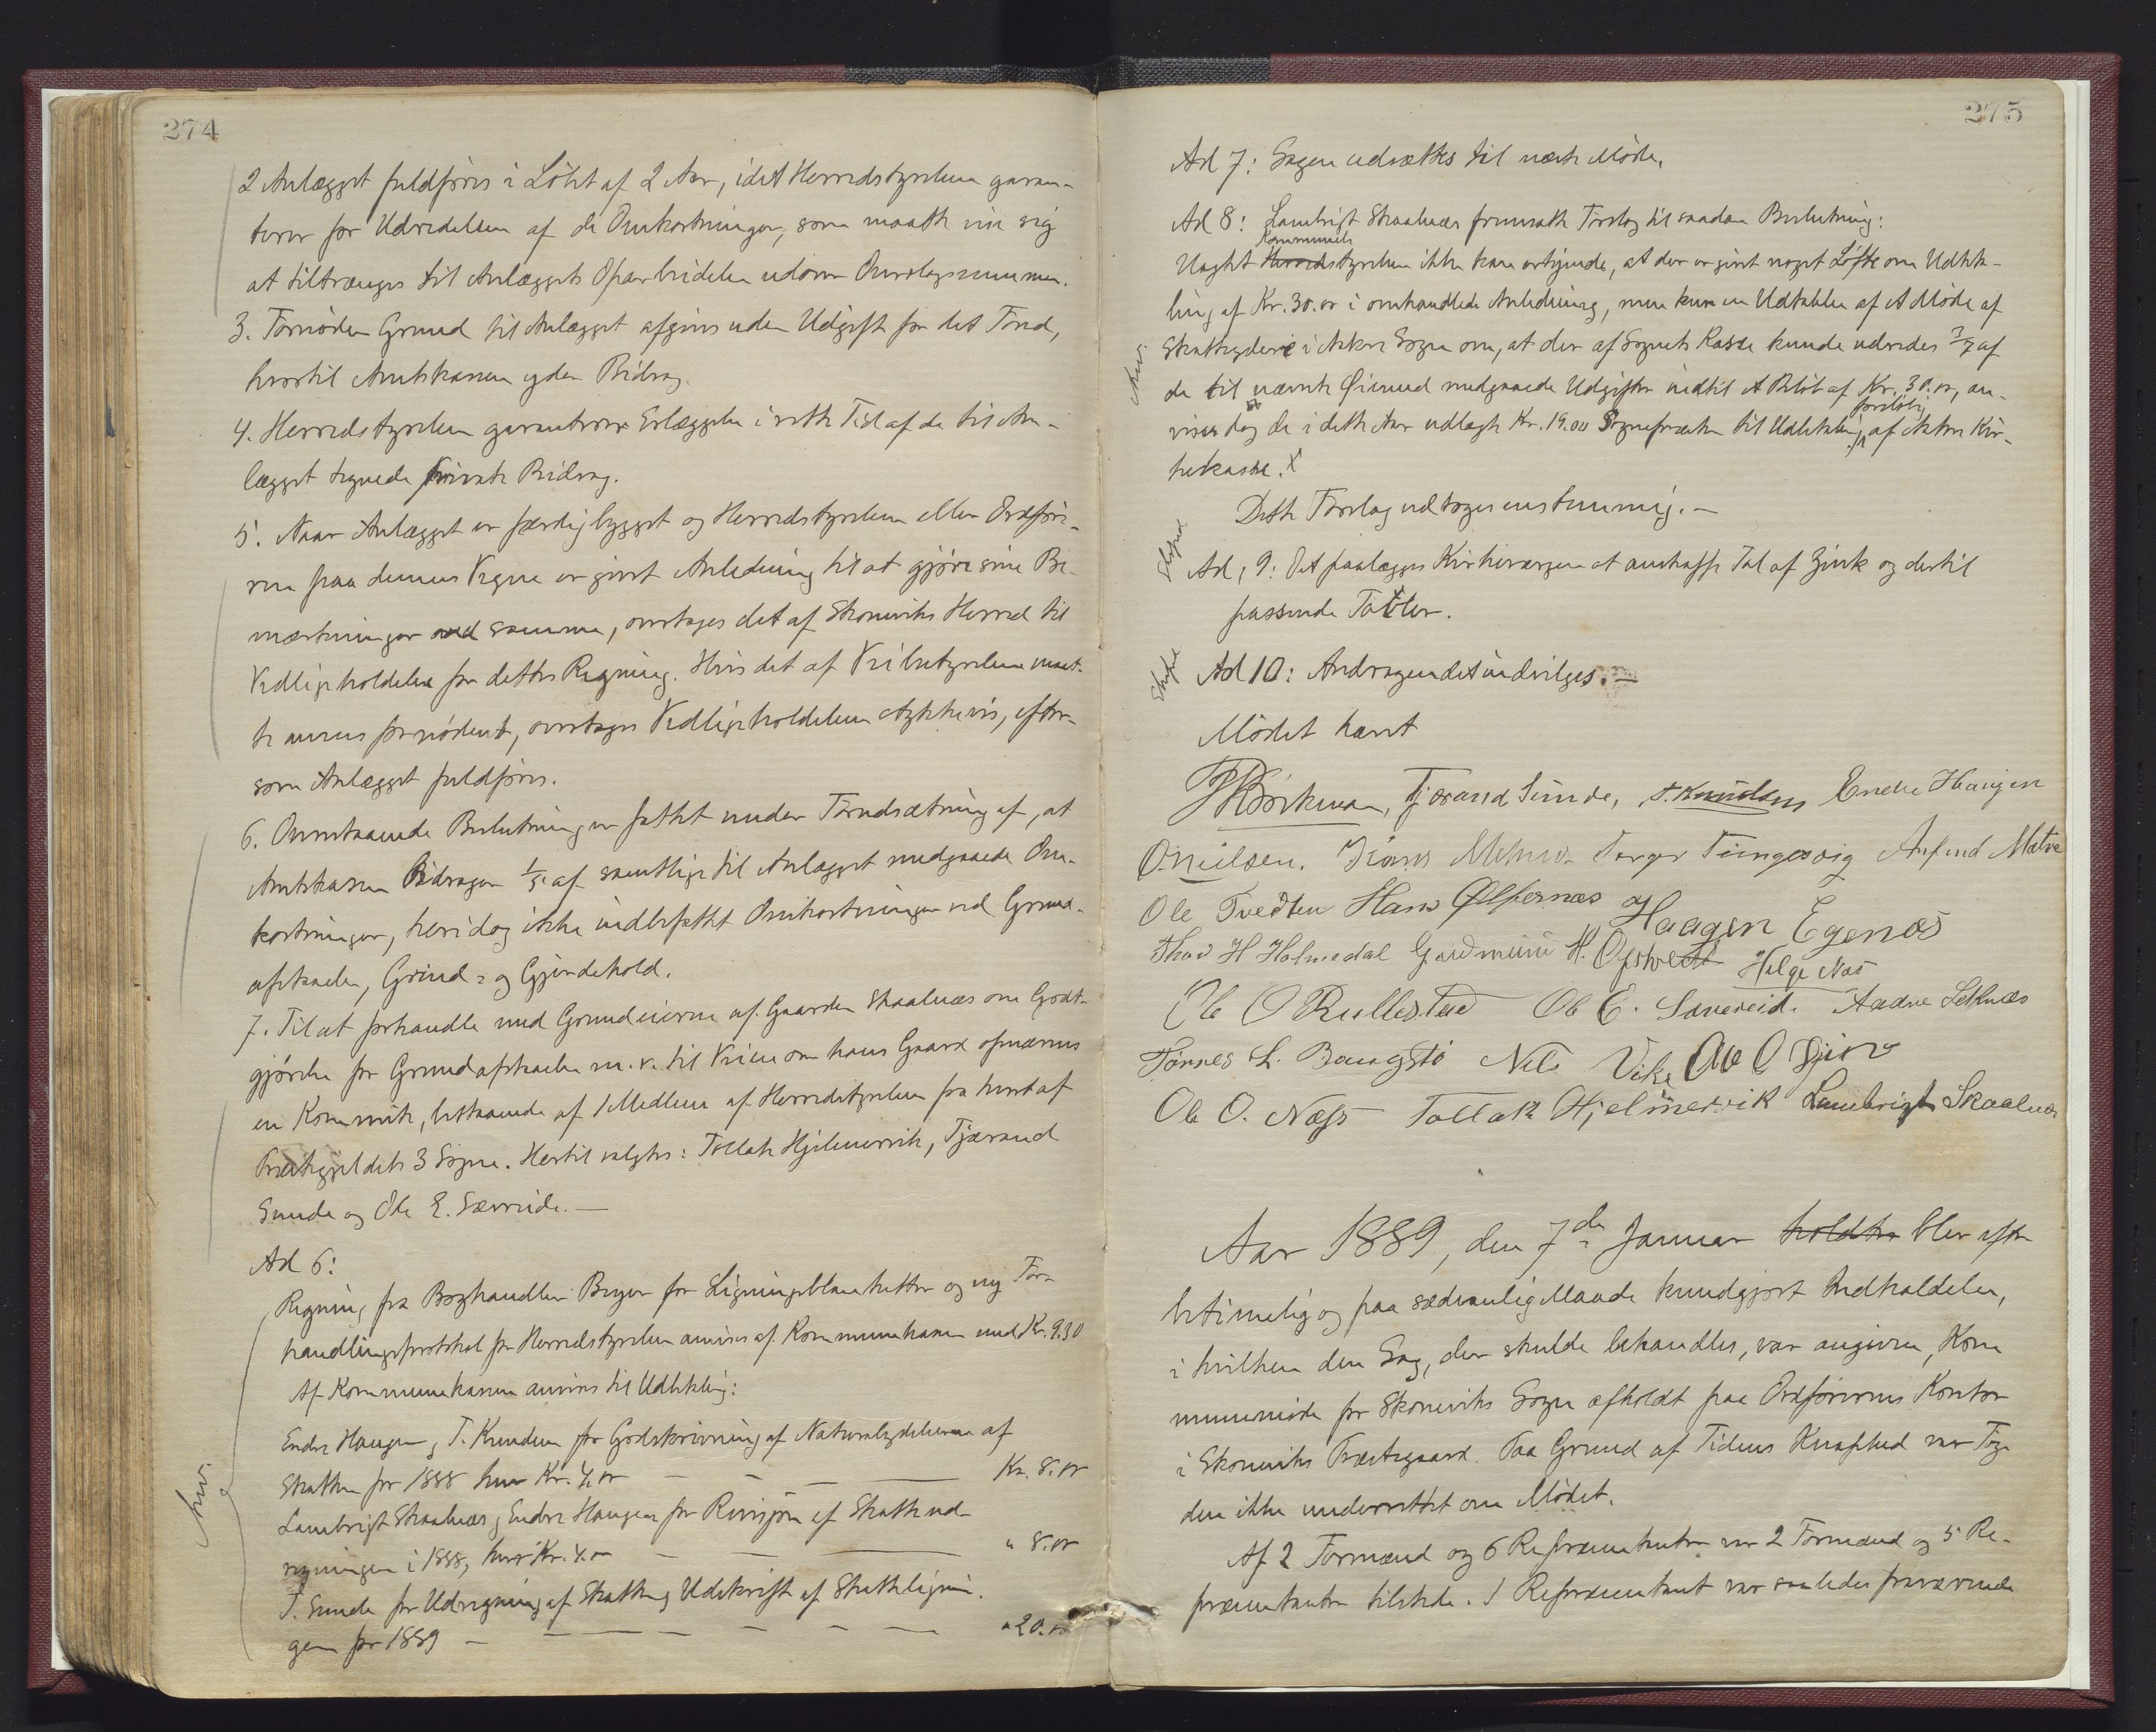 274
2 Anlægget fuldføres i Løbet af 2 Aar, idet Herredstyrelsen garan-
terer for Udredelsen af de Omkostninger, som maatte vise sig
at tiltrænges til Anlæggets Oparbeidelse udover Overslagssummen.
3. Fornøden Grund til Anlægget afgives uden Udgift for det Fond,
hvortil Amtskassen yder Bidrag.
4. Herredstyrelsen garanterer Erlæggelse i rette Tid af de til An-
lægget tegnede private Bidrag.
5. Naar Anlægget er færdigbygget og Herredstyrelsen eller Ordføre-
ren paa dennes Vegne er givet Anledning til at gjøre sine Be-
mærkninger ved samme, overtages det af Skoneviks Herred til
Vedligeholdelse for dettes Regning. Hvis det af Veibestyrelsen maat-
te ansees fornødent, overtages Vedligeholdelsen stykkevis, efter-
som Anlægget fuldføres.
6. Ovenstaaende Beslutning er fattet under Forudsætning af, at
Amtskassen Bidrager 1/5 af samtlige til Anlægget medgaaede Om-
kostninger, heri dog ikke indbefattet Omkostninger ved Grund-
afstaaelse, Grind- og Gjerdehold.
7. Til at forhandle med Grundeierne af Gaarden Skaalnæs om Godt-
gjørelse for Grundafstaaelse m. v. til Veien om hans Gaard opnævnes
en Kommite, bestaaende af 1 Medlem af Herredstyrelsen fra hvert af
Præstegjeldets 3 Sogne. Hertil valgtes: Tollak Hjelmervik, Tjærand
Sunde og Ole E. Sævreide.—
Ad 6:
Regning fra Boghandler Beyer for Ligningsblanketter og ny For-
handlingsprotokol for Herredstyrelsen anvises af Kommunekassen med Kr. 9.30
Af Kommunekassen anvises til Udbetaling:
Endre Haugen, T. Knudsen for Godskrivning af Naturalydelserne af
Skatten for 1888 hver Kr. 4.00 — — — — Kr. 8.00
Lambrigt Skaalnæs, Endre Haugen for Revisjon af Skatteud-
regningen i 1888, hver Kr. 4.00 — — — " 8.00
T. Sunde for Udregning af Skatten, Udskrift af Skattelignin-
gen for 1889 — — — — — — " 20.00
Anv.
275
Ad 7: Sagen udsættes til næste Møde.
Ad 8: Lambrigt Skaalnæs fremsatte Forslag til saadan Beslutning:
Kommune
Uagtet Herredstyrelsen ikke kan erkjende, at der er givet noget Løfte om Udbeta-
ling af Kr. 30.00 i omhandlede Anledning, men kun en Udtalelse af et Møde af
Skatteydere i Aakre Sogn om, at der af Sognets Kasse kunde udredes 3/7 af
de til nævnte Øiemed medgaaede Udgifter indtil et Beløb af Kr. 30.00, an-
vises dog de i dette Aar udlagte Kr. 19.00 Sognepræsten til Udbetaling foreløbig af Aakre Kir-
kekasse.
Dette Forslag vedtoges enstemmig.—
Ad, 9: Det paalægges Kirkeværgen at anskaffe Tal af Zink og dertil
passende Tavler.
Ad 10: Andragendet indvilges.—
Anv.
Mødet hævet
Tjærand Sunde, T. Knudsen Endre Haugen
O. Nielsen. Torger Tungesvig Anfind Matre
Ole Tvedten Hans Ølfernæs Haagen Egenæs
Thor H Holmedal Gudmund H. Opsvedt Helge Næs
Ole O Rullestad Ole E. Sævereid. Aadne Selknæs
Tønnes L. Baugstø Nils Vike Ole O
Ole O. Næss Tollak Hjelmervik Lambrigt Skaalnæs
Aar 1889, den 7de Januar holdtes blev efter
betimelig og paa sædvanlig Maade kundgjort Indkaldelse,
i hvilken den Sag, der skulde behandles, var angiven, Kom
munemøde for Skoneviks Sogn afholdt paa Ordførerens Kontor
i Skoneviks Præstegaard. Paa Grund af Tidens Knaphed var Fog-
den ikke underrettet om Mødet.
Af 2 Formænd og 6 Repræsentanter var 2 Formænd og 5 Re-
præsentanter tilstede. 1 Repræsentant var saaledes fraværende